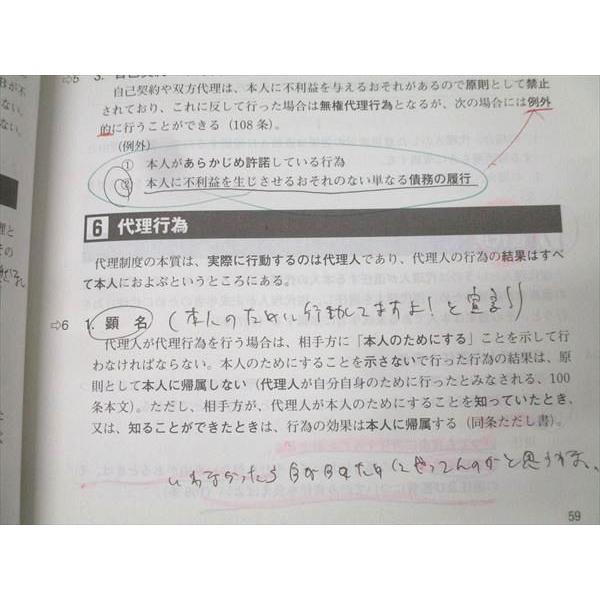 ⇨5 3. 自己契約
自己契約や双方代理は、本人に不利益を与えるおそれがあるので原則として禁止
されており、これに反して行った場合は無権代理行為となるが、次の場合には例外
的に行うことができる（108条）。
（例外）
① 本人があらかじめ許諾している行為
② 本人に不利益を生じさせるおそれのない単なる債務の履行
6 代理行為
代理制度の本質は、実際に行動するのは代理人であり、代理人の行為の結果はすべ
て本人におよぶというところにある。
⇨6 1. 顕名 (本人のために行動してますよ!と宣言!)
代理人が代理行為を行う場合は、相手方に「本人のためにする」ことを示して行
わなければならない。本人のためにすることを示さないで行った行為の結果は、原
則として本人に帰属しない（代理人が自分自身のために行ったとみなされる、100
条本文）。ただし、相手方が、代理人が本人のためにすることを知っていたとき、
又は、知ることができたときは、行為の効果は本人に帰属する（同条ただし書）。
いわなかったら BがBのために やってんのかと思うわな、
59